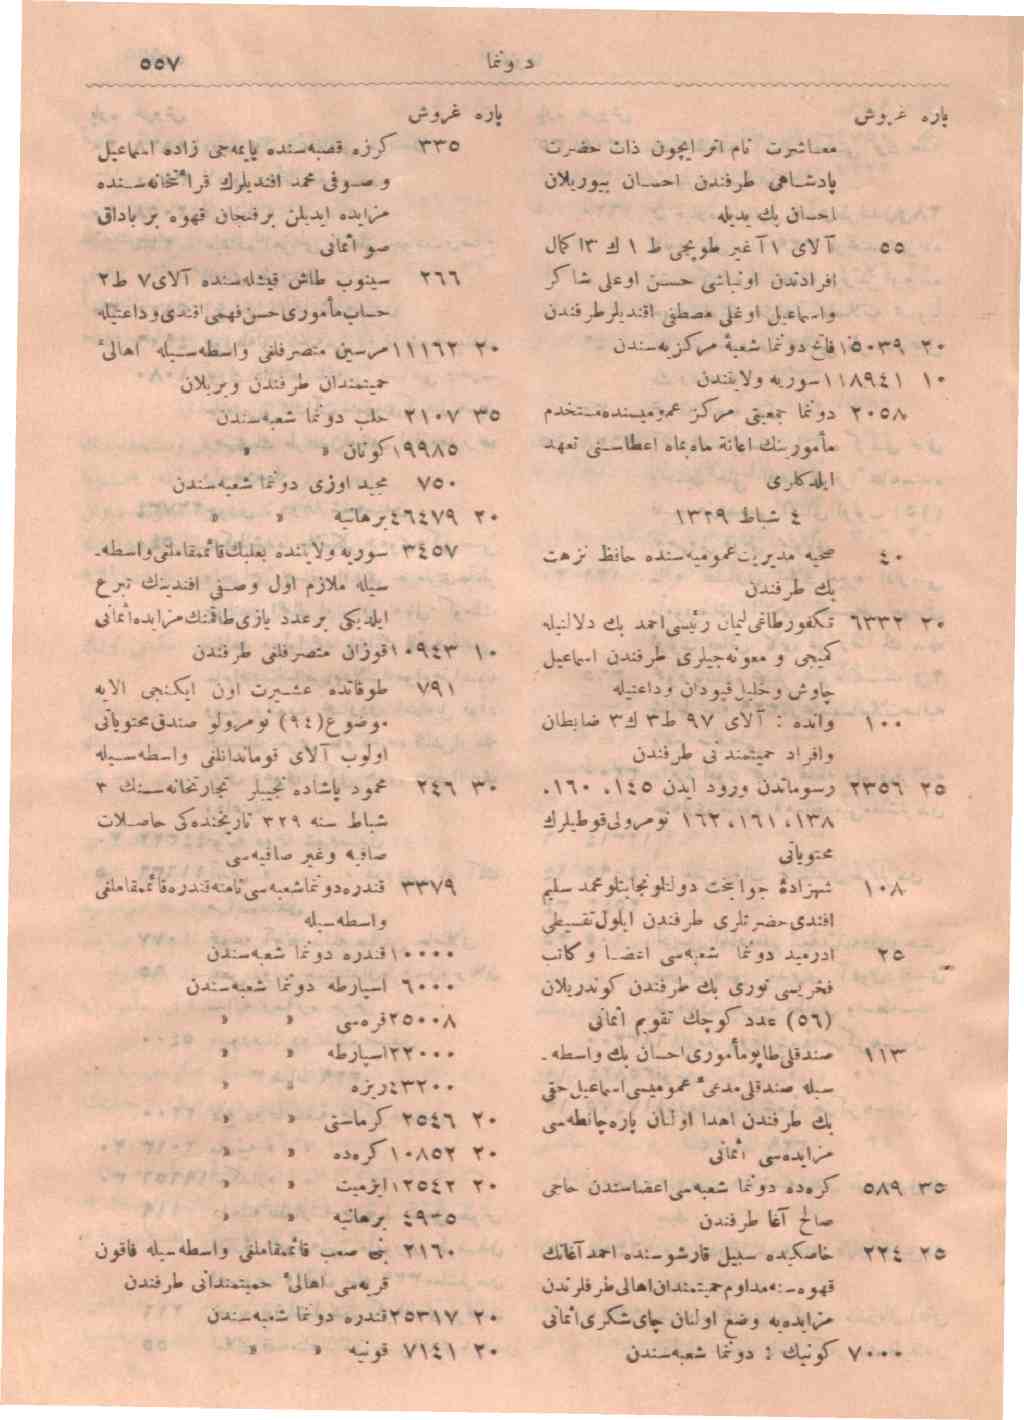 دونما ٥٥٧
پاره غروش
معاشرت نام اثر ایچون ذات حضرت
پادشاهی طرفندن احسان بیوریلان
احسان بك یدیله
٥٥ آلای ١ آغیر طوپچی ط ١ ك ٣ اكمال
افرادندن اونباشی حسن اوغلی شاكر
واسماعیل اوغلی مصطفی افندیلر طرفندن
٢٠ ١٥٠٣٩ فاتح دونما شعبهٔ مركزیه‌سندن
١٠ ١١٨٩٤١ سوریه ولایتندن
٢٠٥٨ دونما جمعیتی مركز عمومیسنده مستخدم
مأمورینك اعانهٔ ماه‌بماه اعطاسنی تعهد
ایلدكلری
٤ شباط ١٣٢٩
٤٠ صحیه مدیریت عمومیه‌سنده حافظ نزهت
بك طرفندن
٢٠ ٦٣٣٢ تكفورطاغی لیمان رئیسی احمد بك دلالتیله
كمیجی و معونه‌جیلری طرفندن اسماعیل
چاوش وخلیل قپودان وداعتیله
١٠٠ وانده : آلای ٩٧ ط ٣ ك ٣ ضابطان
وافراد حمیتمندانی طرفندن
٢٥ ٢٣٥٦ رسوماتدن ورود ایدن ١٤٥، ١٦٠،
١٣٨، ١٦١، ١٦٢ نومرولی قوطیلرك
محتویاتی
١٠٨ شهزادهٔ جوانبخت دولتلو نجابتلو محمد سلیم
افندی حضرتلری طرفندن ایلول تقسیطی
٢٥ ادرمید دونما شعبه‌سی اعضا و كاتب
فخریسی نوری بك طرفندن كوندریلان
(٥٦) عدد كوچك تقویم اثمانی
١١٣ صندقلی طاپو مأموری احسان بك واسطه‌-
سیله صندقلی مدعیٔ عمومیسی اسماعیل حقی
بك طرفندن اهدا اولنان پاره چانطه‌سی
مزایده‌سی اثمانی
٣٥ ٥٨٩ كره‌ده دونما شعبه‌سی اعضاسندن حاجی
صالح آغا طرفندن
٢٥ ٢٢٤ خاصكیده سبیل قارشوسنده احمد آغانك
قهوه‌سنه مداوم حمیتمندان اهالی طرفلرندن
مزایده‌یه وضع اولنان چای شكری اثمانی
٧٠٠٠ كونیك : دونما شعبه‌سندن
پاره غروش
٣٣٥ كرزه قصبه‌سنده پایمه‌جی زاده اسماعیل
و صوفی محمد افندیلرك قرائتخانه‌سنده
مزایده ایدیلن برفنجان قهوه بر باداق
صو اثمانی
٢٦٦ سینوب طاش قیشله‌سنده آلای ٧ ط ٢
حساب مأموری حسن فهمی افندی وداعتیله
٢٠ ١١١٦٢ مرسین متصرفلغی واسطه‌سیله اهالیٔ
حمیتمندان طرفندن ویریلان
٣٥ ٢١٠٧ حلب دونما شعبه‌سندن
١٩٩٨٥ كونان » »
٧٥٠ مجید اوزی دونما شعبه‌سندن
٢٠ ٤٦٤٧٩ برهانیه » »
٣٤٥٧ سوریه ولایتنده بعلبك قائممقاملغی واسطه‌-
سیله ملازم اول وصفی افندینك تبرع
ایلدیكی بر عدد یازی طاقمنك مزایده اثمانی
١٠ ١٠٩٤٣ قوزان متصرفلغی طرفندن
٧٩١ طوقاتده عشیرت اون ایكنجی الایه
موضوع (٩٤) نومرولو صندق محتویاتی
اولوب آلای قوماندانلغی واسطه‌سیله
٣٠ ٢٤٦ محمود پاشاده نجیبلر تجارتخانه‌سنك ٣
شباط سنه ٣٢٩ تاریخنده‌كی حاصلات
صافیه وغیر صافیه‌سی
٣٣٧٩ قندره دونما شعبه‌سی نامنه قندره قائممقاملغی
واسطه‌سیله
١٠٠٠٠ قندره دونما شعبه‌سندن
٦٠٠٠ اسپارطه دونما شعبه‌سندن
٢٥٠٠٨ قره‌سی » »
٢٢٠٠٠ اسپارطه » »
٤٣٢٠٠ ریزه » »
٢٠ ٢٥٤٦ كرماستی » »
٢٠ ١٠٨٥٢ كره‌ده » »
٢٠ ١٢٥٤٢ ازمیت » »
برهانیه » »
٢١٦٠ بنی صعب قائممقاملغی واسطه‌سیله قاقون
قریه‌سی اهالیٔ حمیتمندانی طرفندن
٢٠ ٢٥٣١٧ قندره دونما شعبه‌سندن
٢٠ ٧١٤١ قونیه » »